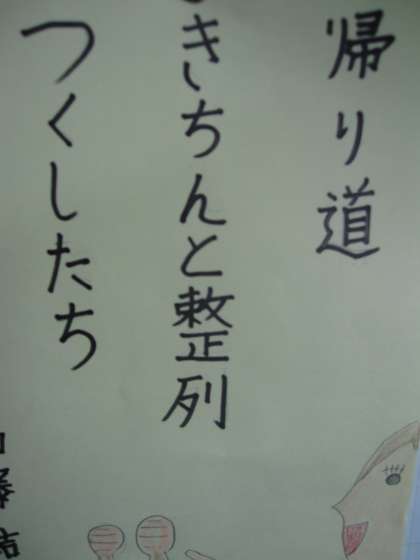 帰り道
きちんと整列
つくしたち